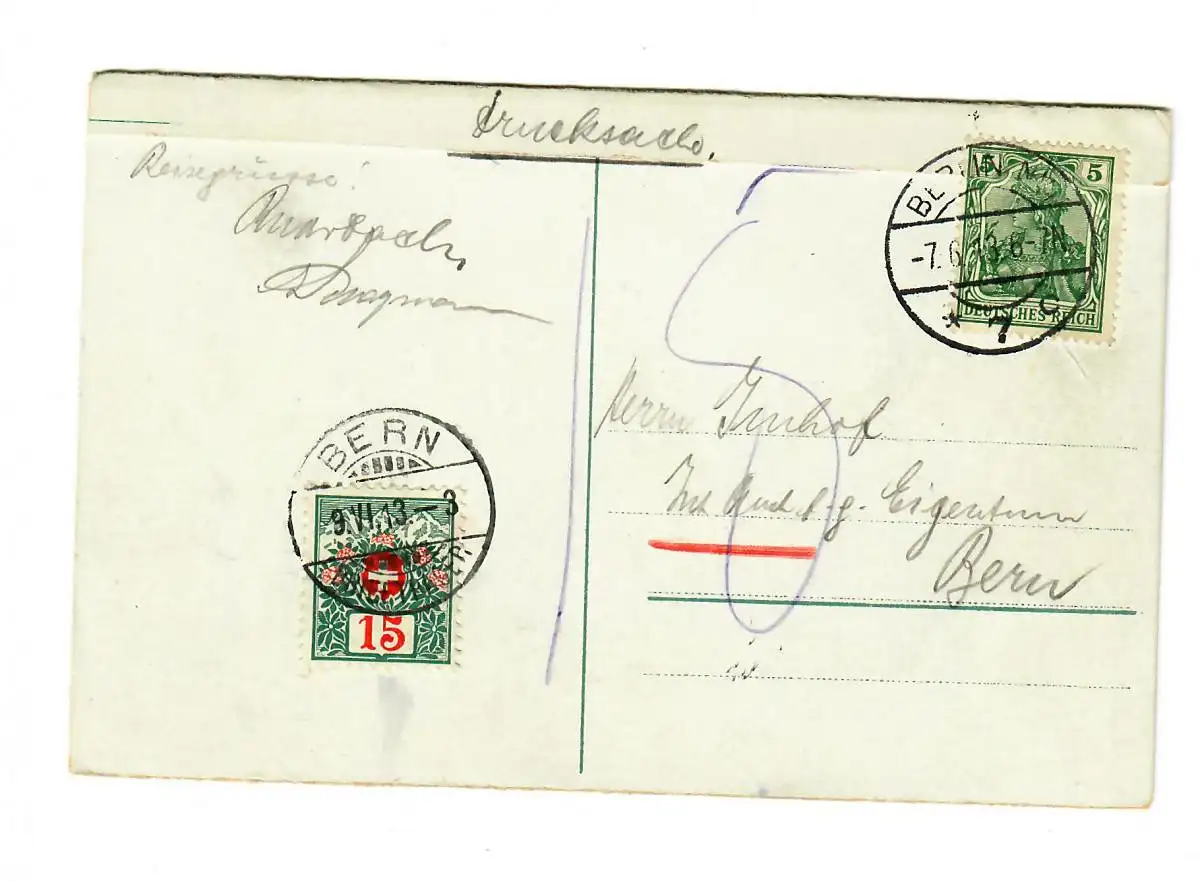 Drucksache.
Reisegrüsse!
5 5
DEUTSCHES REICH
BERLIN
-7.6.13.6-7N.
* 7 c
Herrn Imhof
Eigentum
Bern
BERN
9.VI.13-8
15
15